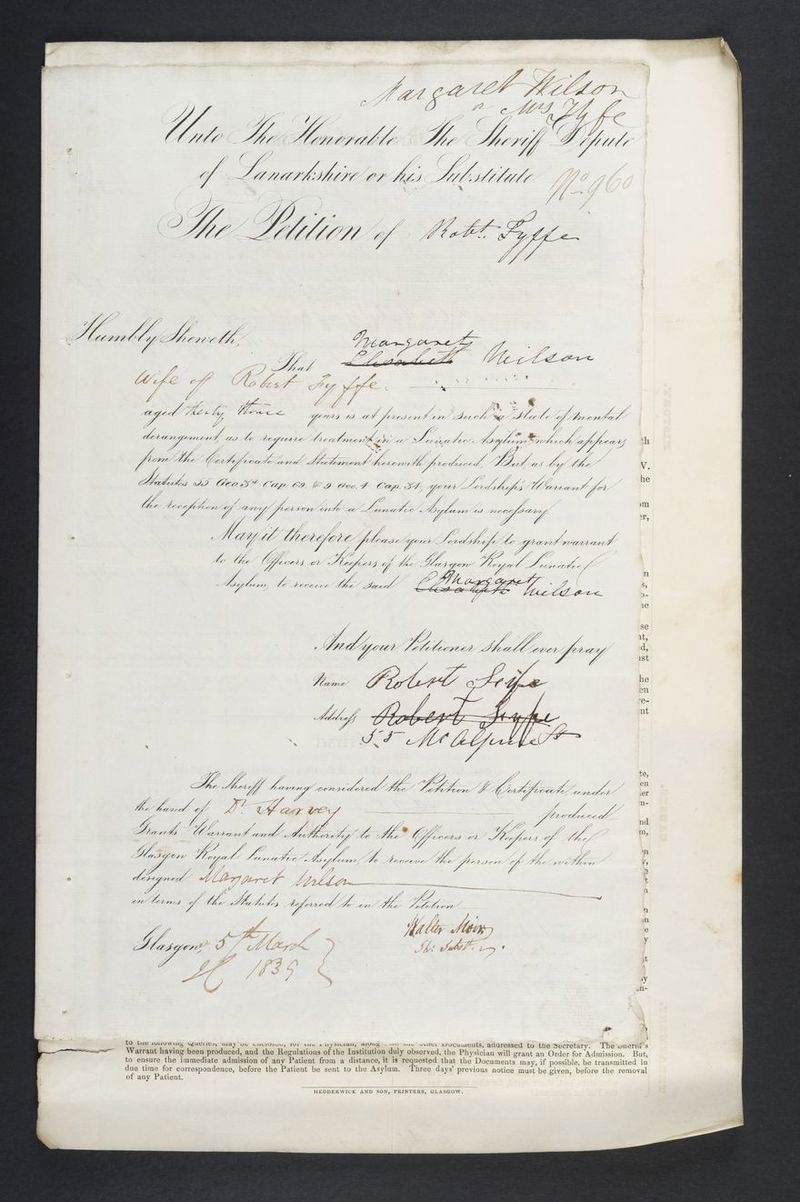 Margaret Wilson
or Mrs Fyfe
Unto The Honorable The Sheriff Depute
of Lanarkshire or his Substitute
No 960
The Petition of Robt. Fyffe
Humbly Sheweth,
Margaret
That Elisabeth Wilson
Wife of Robert Fyffe.
aged Twenty three years is at present in such a state of mental
derangement as to require treatment in a Lunatic Asylum which appears
from the Certificate and Statement herewith produced, But as by the
Statutes 55 Geo. 3d Cap. 69 & 9 Geo. 4 Cap. 34, your Lordship's Warrant for
the reception of any person into a Lunatic Asylum is necessary
May it therefore please your Lordship to grant warrant
to the Officers or Keepers of the Glasgow Royal Lunatic
Margaret
Asylum, to receive the said Elisabeth Wilson
And your Petitioner shall ever pray
Name Robert
Address Robert
55 McAlpine St
The Sheriff having considered the Petition & Certificate under
the hand of Dr. Harvey produced
Grants Warrant and Authority to the Officers or Keepers of the
Glasgow Royal Lunatic Asylum, to receive the person of the within
designed Margaret Wilson
in terms of the Statutes referred to in the Petition
Glasgow, 5th March
1839
Walter Moir
to the following Queries, may be enclosed, for the Physician, along the other Documents, addressed to the Secretary. The Sheriff's
Warrant having been produced, and the Regulations of the Institution duly observed, the Physician will grant an Order for Admission. But,
to ensure the immediate admission of any Patient from a distance, it is requested that the Documents may, if possible, be transmitted in
due time for correspondence, before the Patient be sent to the Asylum. Three days' previous notice must be given, before the removal
of any Patient.
HEDDERWICK AND SON, PRINTERS, GLASGOW.